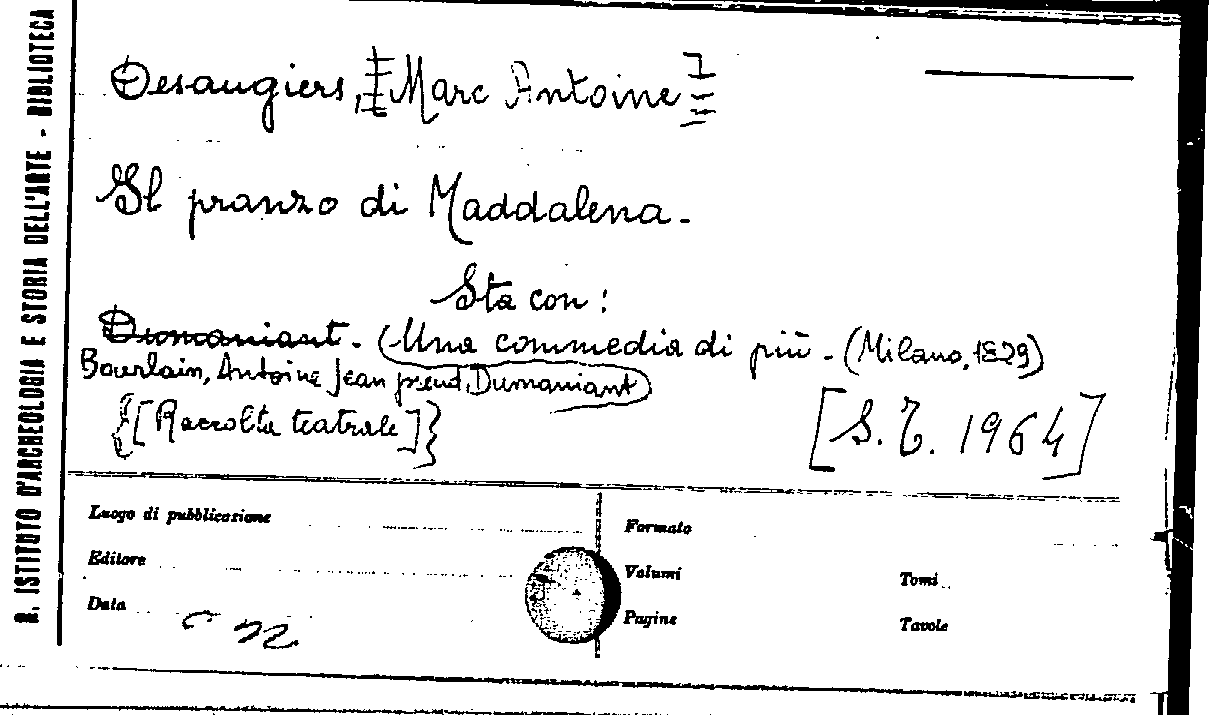 R. ISTITUTO D'ARCHEOLOGIA E STORIA DELL'ARTE - BIBLIOTECA
Desaugiers, [Marc Antoine]
Il pranzo di Maddalena.
Sta con:
Dumaniant. (Una commedia di più. (Milano, 1829)
Bourlain, Antoine Jean pseud. Dumaniant)
{[Raccolta teatrale]}
[S. T. 1964]
Luogo di pubblicazione
Formato
Editore
Volumi
Tomi
Data
Pagine
Tavole